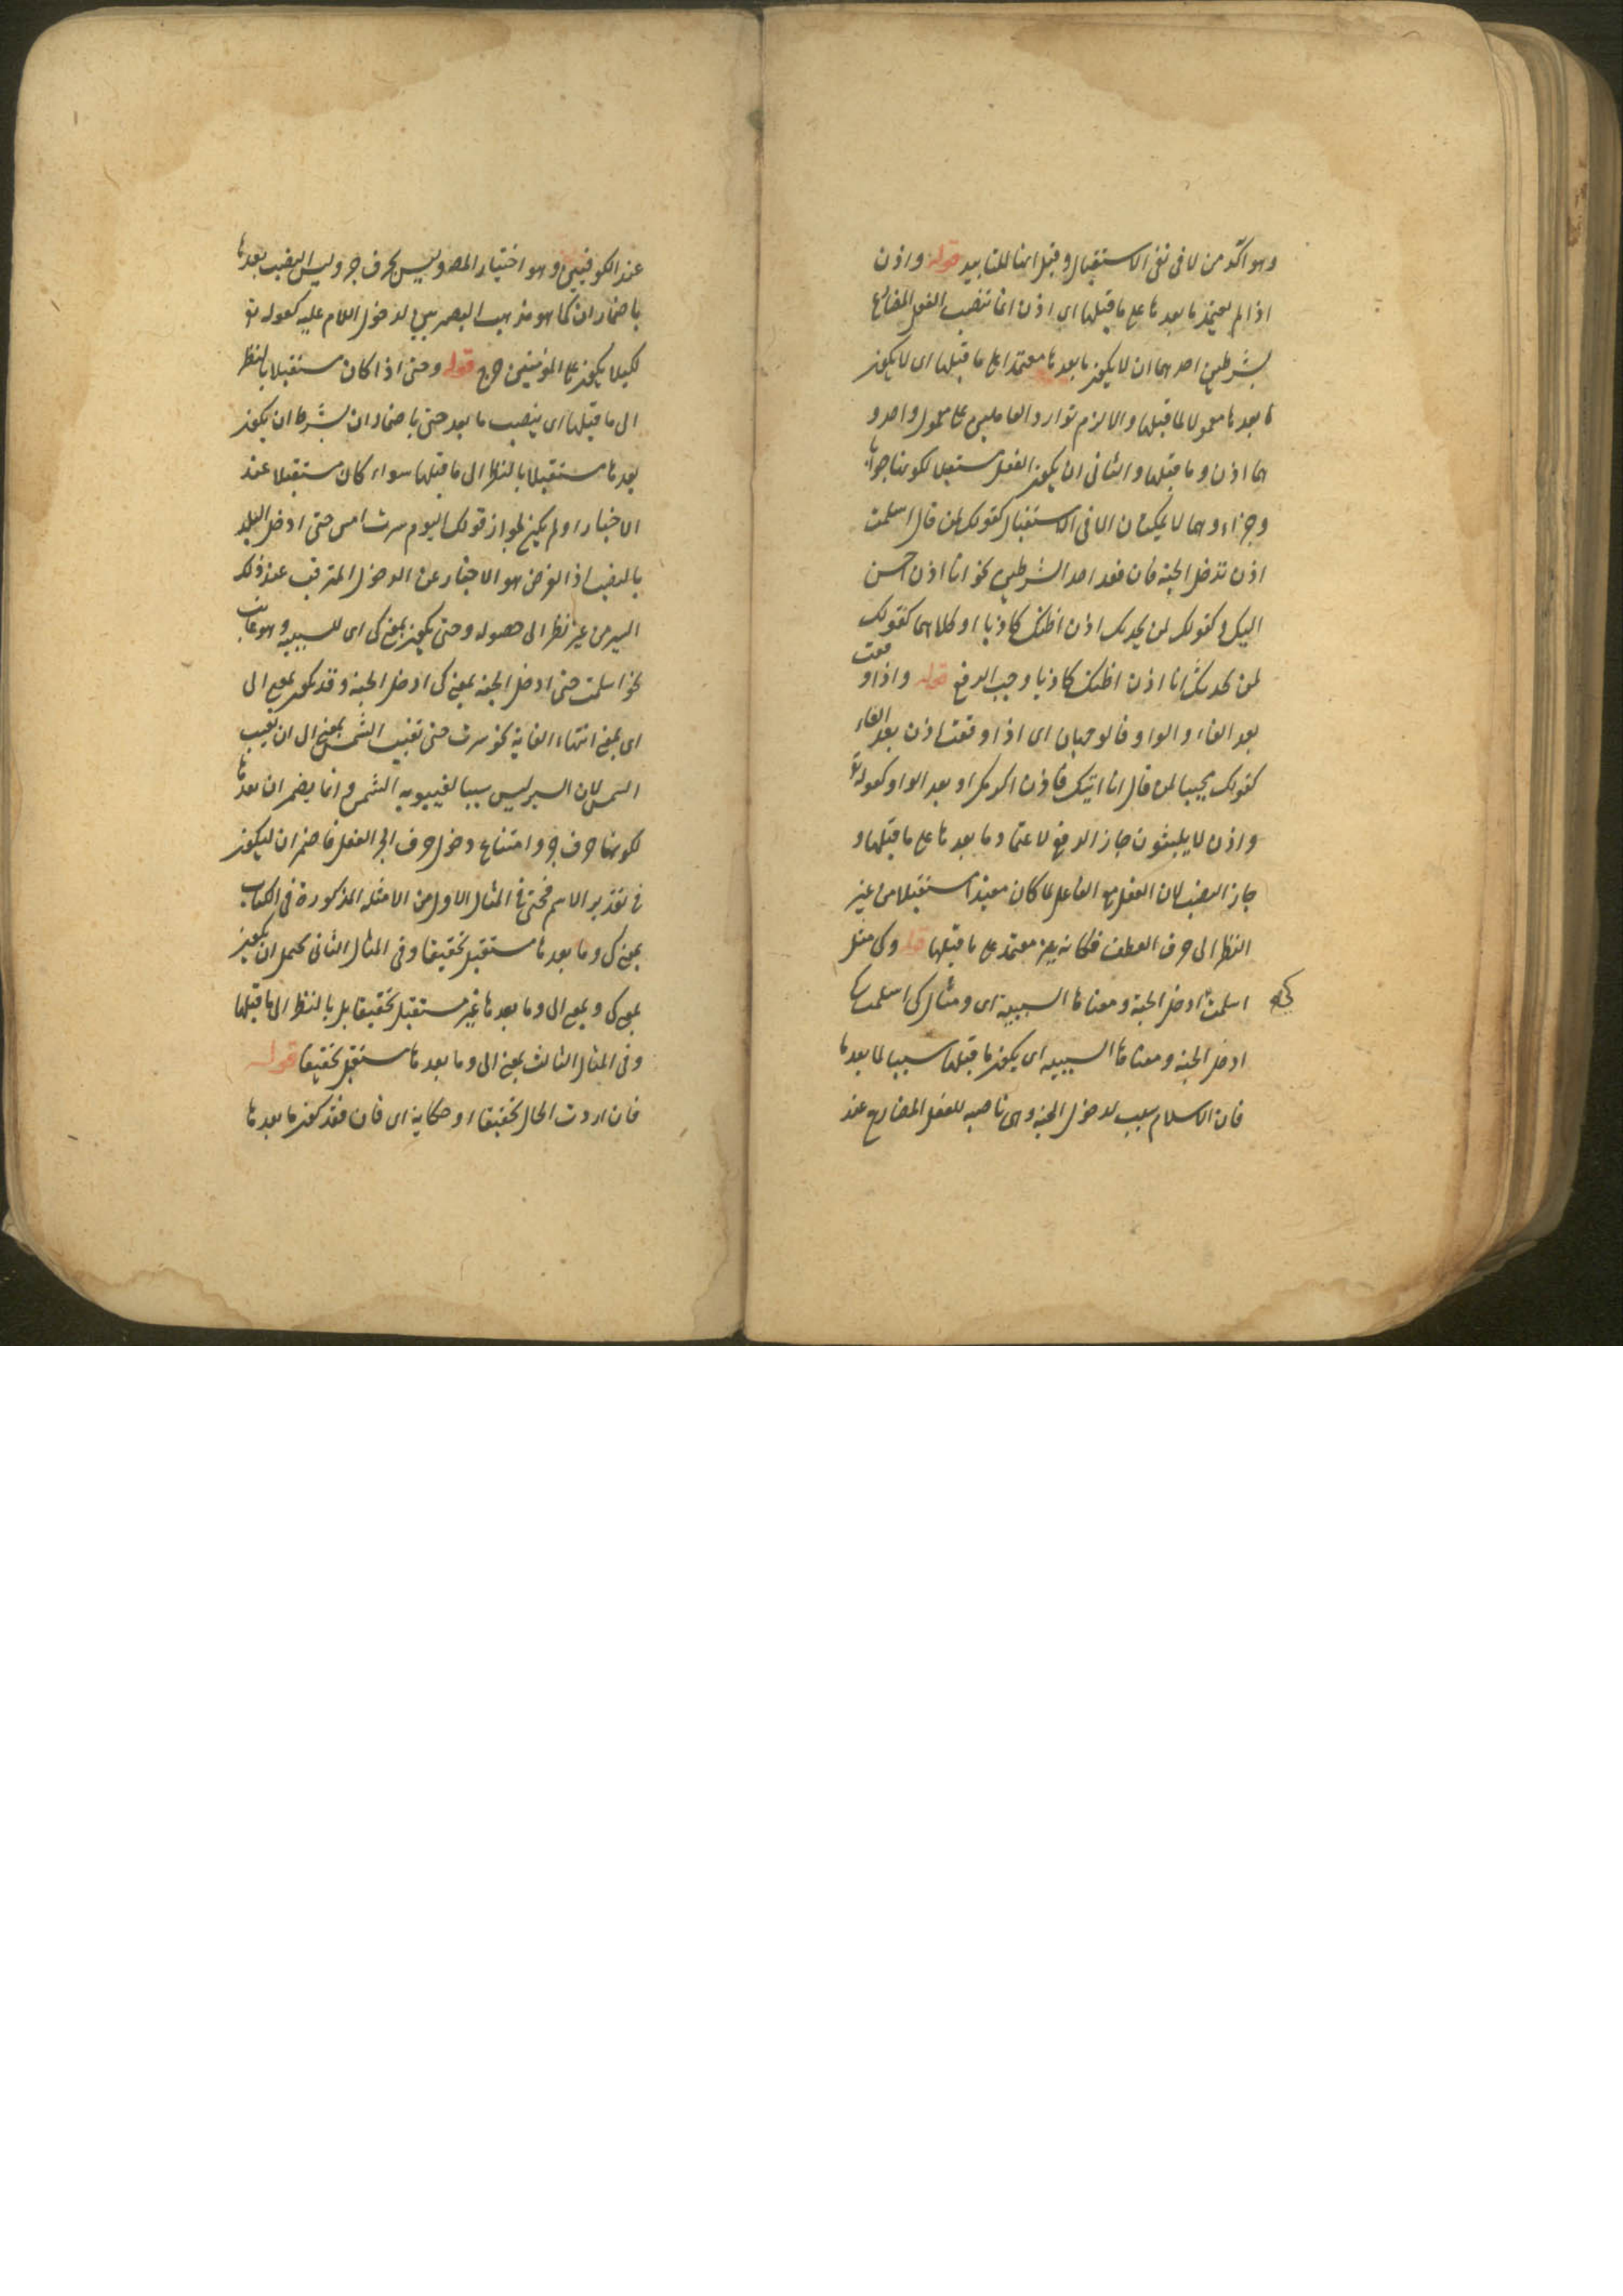 وهو آكد من لا فى نفى الاستقبال وقيل انها للتابيد قوله واذن
اذا لم يعتمد ما بعدها على ما قبلها اى اذن انما تنصب الفعل المضارع
بشرطين احدهما ان لا يكون ما بعدها معتمدا على ما قبلها اى لا يكون
ما بعدها معمولا لما قبلها والا لزم توارد العاملين على معمول واحد و
هما اذن وما قبلها والثانى ان يكون الفعل مستقبلا لكونها جوابا
وجزاء وهما لا يمكنان الا فى الاستقبال كقولك لمن قال اسلمت
اذن تدخل الجنة فان فقد احد الشرطين نحو انا اذن احسن
اليك وكقولك لمن يحدثك اذن اظنك كاذبا او كلاهما كقولك
لمن يحدثك انا اذن اظنك كاذبا وجب الرفع قوله واذا وقعت
بعد الفاء والواو فالوجهان اى اذا وقعت اذن بعد الفاء
كقولك مجيبا لمن قال انا اتيك فاذن اكرمك او بعد الواو كقوله تع
واذن لا يلبثون جاز الرفع لاعتماد ما بعدها على ما قبلها و
جاز النصب لان الفعل مع الفاعل لما كان مفيدا مستقبلا من غير
النظر الى حرف العطف فكانه غير معتمد على ما قبلها قوله وكى مثل
اسلمت كى ادخل الجنة ومعناها السببية اى ومثال كى اسلمت كى
ادخل الجنة ومعناها السببية اى يكون ما قبلها سببا لما بعدها
فان الاسلام سبب لدخول الجنة وهى ناصبه للفعل المضارع عند
عند الكوفيين وهو اختيار المصـ وليس بحرف جر وليس النصب بعدها
باضمار ان كما هو مذهب البصريين لدخول اللام عليه كقوله تع
لكيلا يكون على المؤمنين حرج قوله وحتى اذا كان مستقبلا بالنظر
الى ما قبلها اى ينصب ما بعد حتى باضمار ان بشرط ان يكون
بعدها مستقبلا بالنظر الى ما قبلها سواء كان مستقبلا عند
الاخبار او لم يكن لجواز قولك اليوم سرت امس حتى ادخل البلد
بالنصب اذ الغرض هو الاخبار عن الدخول المترقب عند ذلك
السير من غير نظر الى حصوله وحتى يكون بمعنى كى اى للسببية وهو غالب
نحو اسلمت حتى ادخل الجنة بمعنى كى ادخل الجنة وقد يكون بمعنى الى
اى بمعنى انتهاء الغاية نحو سرت حتى تغيب الشمس بمعنى الى ان تغيب
الشمس لان السير ليس سببا لغيبوبة الشمس وانما يضمر ان بعدها
لكونها حرف جر وامتناع دخول حرف الجر الفعل فاضمر ان ليكون
فى تقدير الاسم فحتى فى المثال الاول من الامثلة المذكورة فى الكتاب
بمعنى كى وما بعدها مستقبل تحقيقا وفى المثال الثانى يحتمل ان يكون
بمعنى كى وبمعنى الى وما بعدها غير مستقبل تحقيقا بل بالنظر الى ما قبلها
وفى المثال الثالث بمعنى الى وما بعدها مستقبل تحقيقا قوله
فان اردت الحال تحقيقا او حكاية اى فان فقد كون ما بعدها